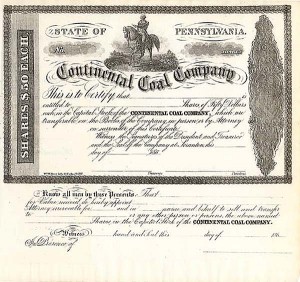 STATE OF PENNSYLVANIA.
No.
SHARES $50 EACH
Continental Coal Company
This is to Certify, that is
entitled to Shares of Fifty Dollars
each in the Capital Stock of the CONTINENTAL COAL COMPANY, which are
transferable on the Books of the Company in person or by Attorney
on surrender of this Certificate.
Witness the Signatures of the President and Treasurer
and the Seal of the Company at
day of 186
Treasurer. President.
Know all men by these Presents, That
for Value received do hereby appoint
Attorney irrevocable for and in name and behalf to sell and transfer
to or any other person or persons the above named
Shares, in the Capital Stock of the CONTINENTAL COAL COMPANY.
Witness hand and Seal this day of 186
In Presence of